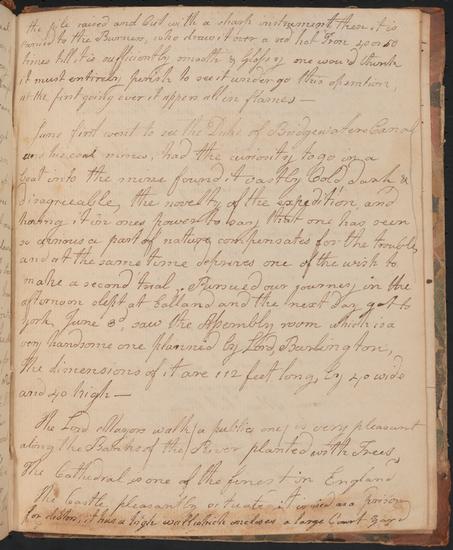 the pile raised and Cut with a sharp instrument then it is
carried to the Burners, who draw it over a red hot Iron 40 or 50
times till it is sufficiently smooth & Glossy one wou'd think
it must entirely perish to see it undergo this operation
at the first going over it appears all in flames —
June first went to see the Duke of Bridgewaters Canal
and his coal mines, had the curiosity to go in a
boat into the mine found it vastly Cold, dark &
disagreeable, the novelty of the expedition, and
having it in ones power to say, that one has seen
so curious a part of nature, compensates for the trouble,
and at the same time deprives one of the wish to
make a second trial. Pursued our journey in the
afternoon slept at Ealland and the next day got to
York, June 3d, saw the Assembly room which is a
very handsome one planned by Lord Burlington,
the dimensions of it are 112 feet long, by 40 wide
and 40 high —
The Lord Mayors walk, a public one, is very pleasant
along the Banks of the River planted with Trees,
The Cathedral is one of the finest in England
The Castle pleasantly situated it is used as a prison
for debtors, it has a high wall which encloses a large Court Yard